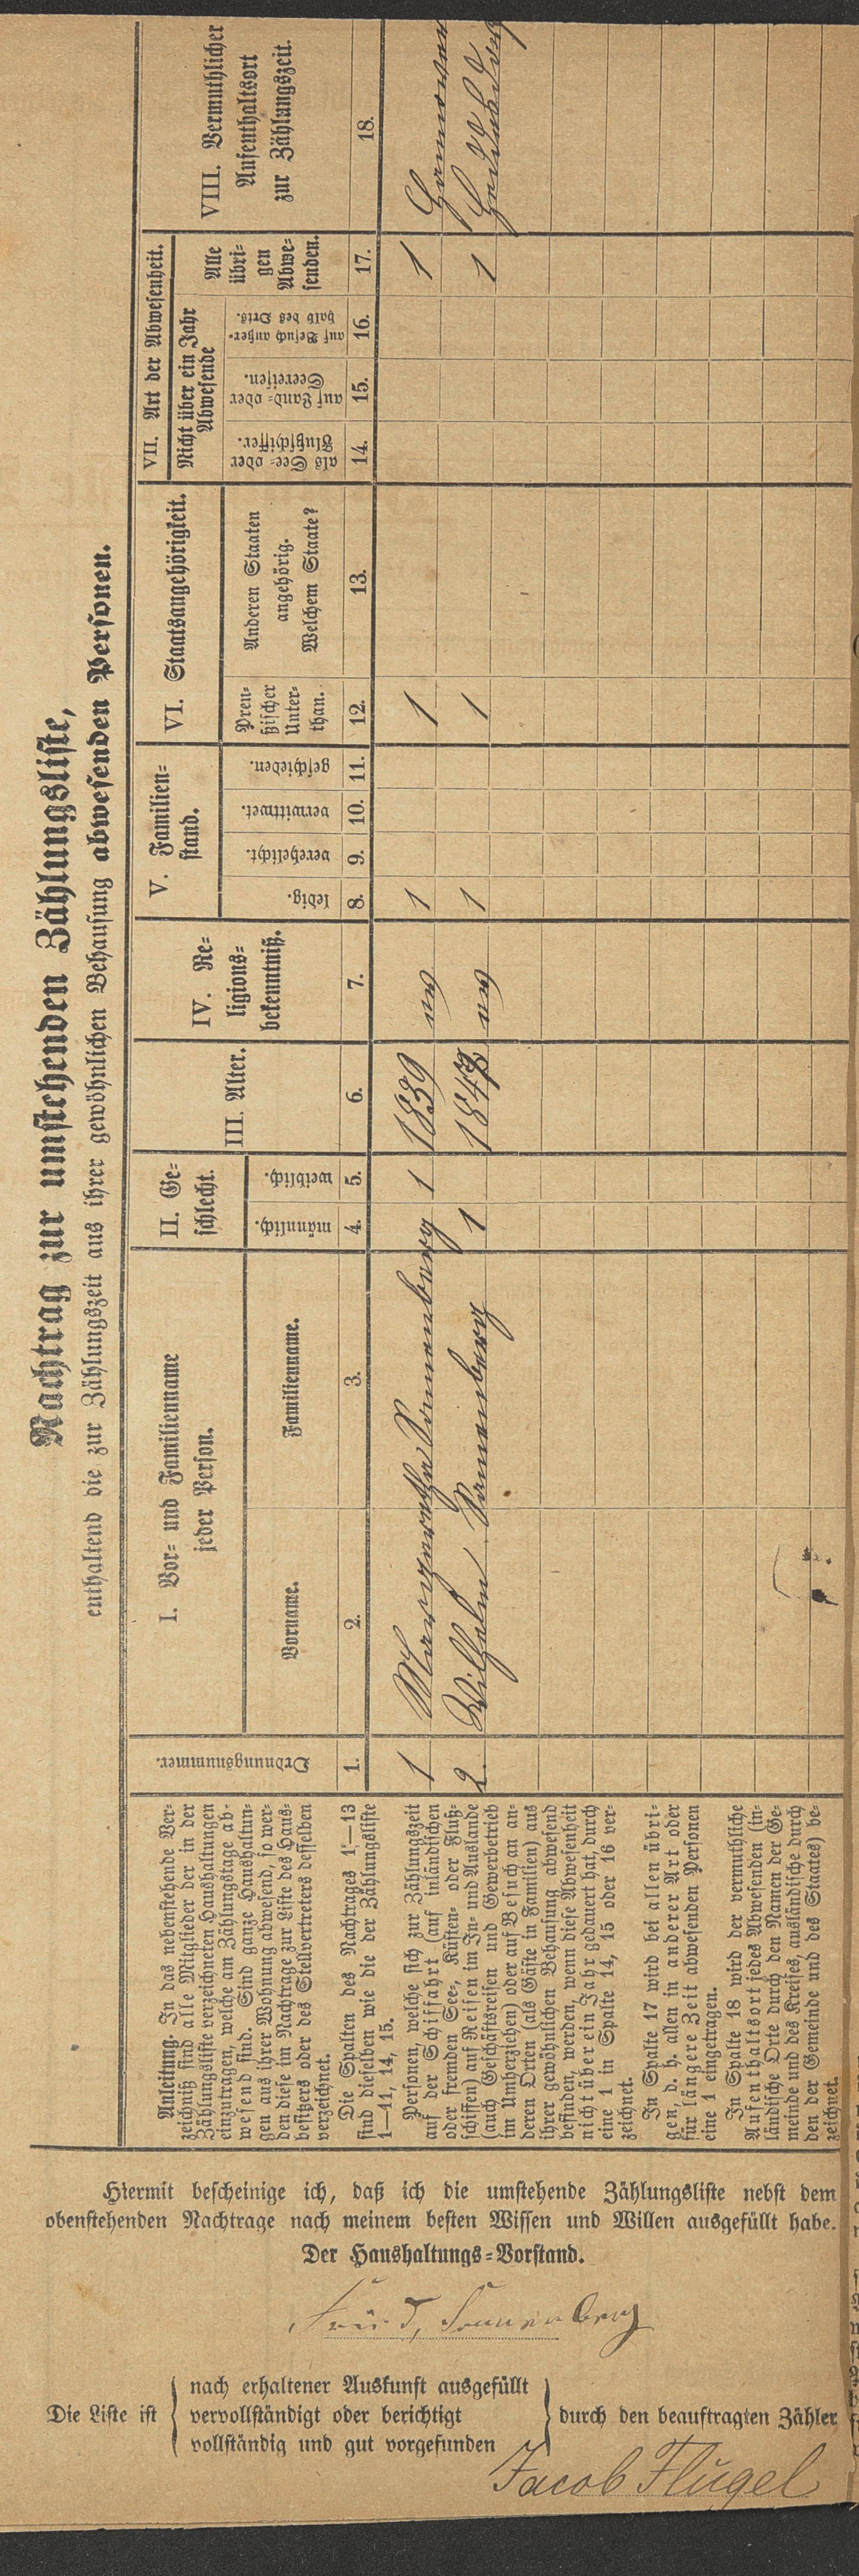 Nachtrag zur umstehenden Zählungsliste,
enthaltend die zur Zählungszeit aus ihrer gewöhnlichen Behausung abwesenden Personen.
Anleitung. In das nebenstehende Ver-
zeichniß sind alle Mitglieder der in der
Zählungsliste verzeichneten Haushaltungen
einzutragen, welche am Zählungstage ab-
wesend sind. Sind ganze Haushaltun-
gen aus ihrer Wohnung abwesend, so wer-
den diese im Nachtrage zur Liste des Haus-
besitzers oder des Stellvertreters desselben
verzeichnet.
Die Spalten des Nachtrages 1—13
sind dieselben wie die der Zählungsliste
1—11, 14, 15.
Personen, welche sich zur Zählungszeit
auf der Schiffahrt (auf inländischen
oder fremden See-, Küsten- oder Fluß-
schiffen) auf Reisen im In- und Auslande
(auch Geschäftsreisen und Gewerbetrieb
im Umherziehen) oder auf Besuch an an-
deren Orten (als Gäste in Familien) aus
ihrer gewöhnlichen Behausung abwesend
befinden, werden, wenn diese Abwesenheit
nicht über ein Jahr gedauert hat, durch
eine 1 in Spalte 14, 15 oder 16 ver-
zeichnet.
In Spalte 17 wird bei allen übri-
gen, d. h. allen in anderer Art oder
für längere Zeit abwesenden Personen
eine 1 eingetragen.
In Spalte 18 wird der vermuthliche
Aufenthaltsort jedes Abwesenden (in-
ländische Orte durch den Namen der Ge-
meinde und des Kreises, ausländische durch
den der Gemeinde und des Staates) be-
zeichnet.
Ordnungsnummer.
1.
I. Vor- und Familienname
jeder Person.
Vorname.
2.
Familienname.
3.
II. Ge-
schlecht.
männlich.
4.
weiblich.
5.
III. Alter.
6.
IV. Re-
ligions-
bekenntniß.
7.
V. Familien-
stand.
ledig.
8.
verehelicht.
9.
verwittwet.
10.
geschieden.
11.
VI. Staatsangehörigkeit.
Preu-
ßischer
Unter-
than.
12.
Anderen Staaten
angehörig.
Welchem Staate?
13.
VII. Art der Abwesenheit.
Nicht über ein Jahr
Abwesende
als See- oder
Flußschiffer.
14.
auf Land- oder
Seereisen.
15.
auf Besuch außer-
halb des Orts.
16.
Alle
übri-
gen
Abwe-
senden.
17.
VIII. Vermuthlicher
Aufenthaltsort
zur Zählungszeit.
18.
1 Margaretha Sonnenberg 1 1839 1 1 1 Hannover
2. Wilhelm Sonnenberg 1 1 1 1
Hiermit bescheinige ich, daß ich die umstehende Zählungsliste nebst dem
obenstehenden Nachtrage nach meinem besten Wissen und Willen ausgefüllt habe.
Der Haushaltungs-Vorstand.
Sonnenberg
Die Liste ist { nach erhaltener Auskunft ausgefüllt
vervollständigt oder berichtigt
vollständig und gut vorgefunden } durch den beauftragten Zähler
Jacob Flügel